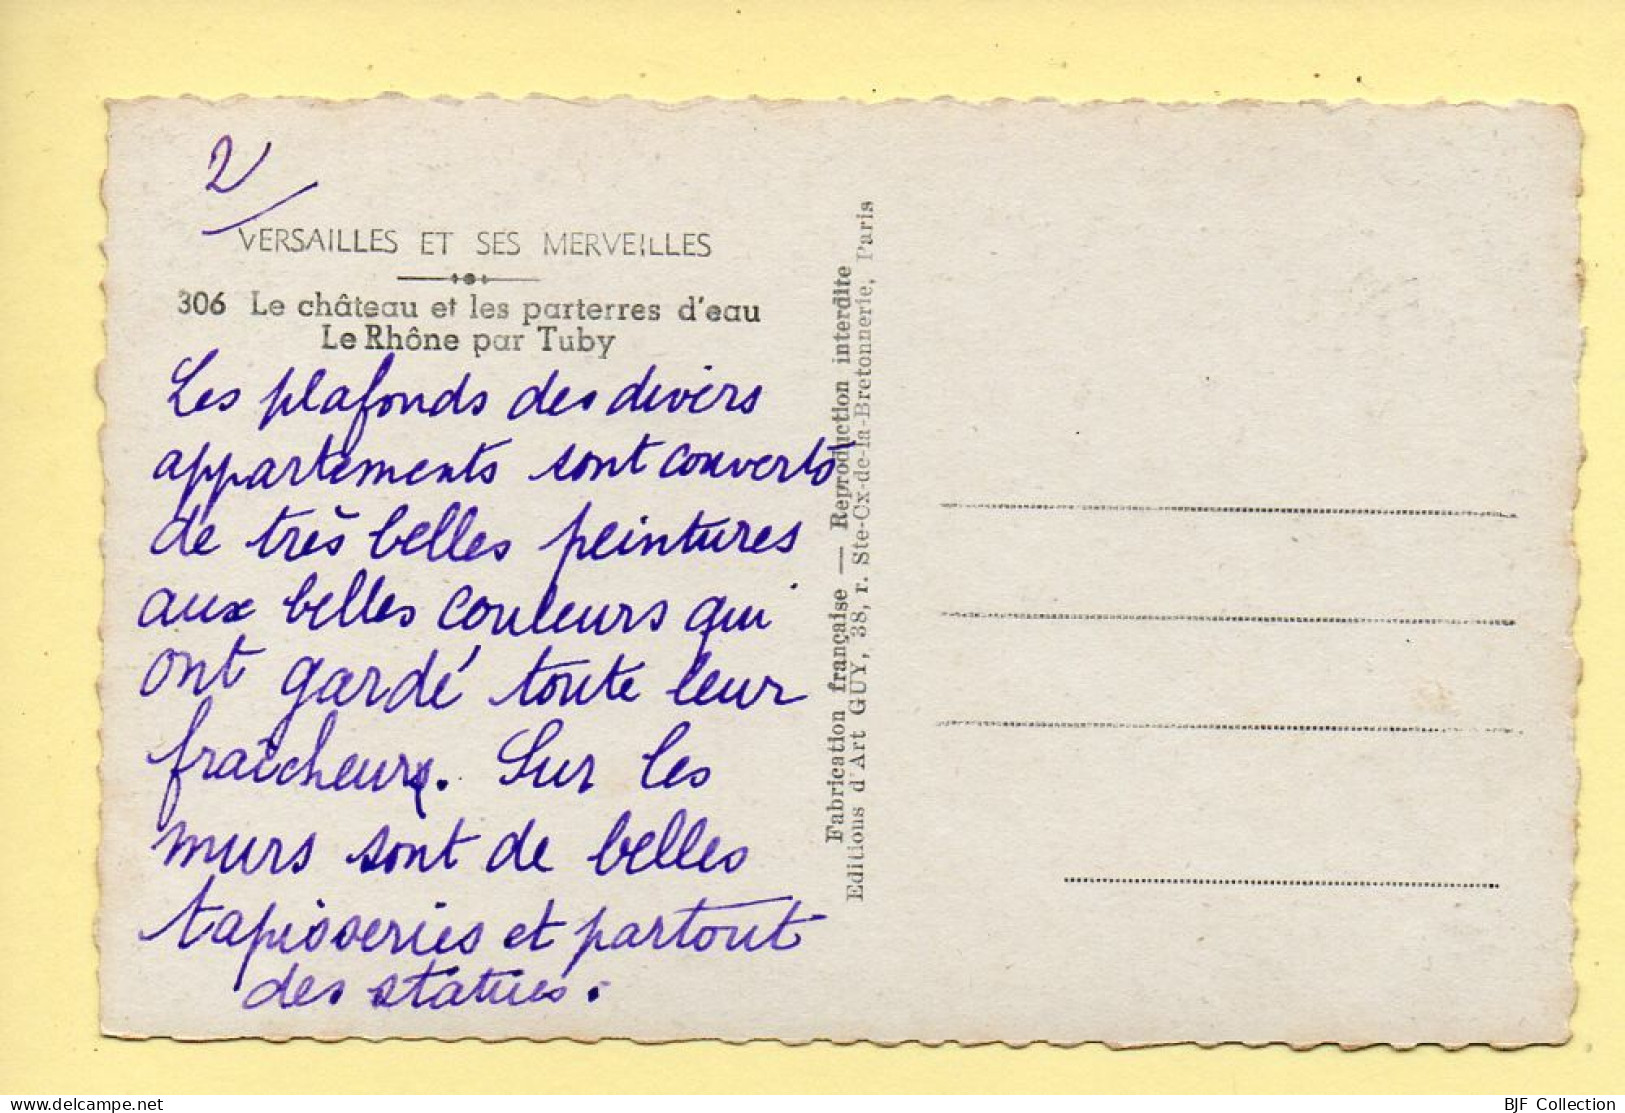 2/
VERSAILLES ET SES MERVEILLES
306 Le château et les parterres d'eau
Le Rhône par Tuby
Les plafonds des divers
appartements sont couverts
de très belles peintures
aux belles couleurs qui
ont gardé toute leur
fraîcheur. Sur les
murs sont de belles
tapisseries et partout
des statues.
Fabrication française — Reproduction interdite
Editions d'Art GUY, 38, r. Ste-Cx-de-la-Bretonnerie, Paris
delcampe.net
BJF Collection